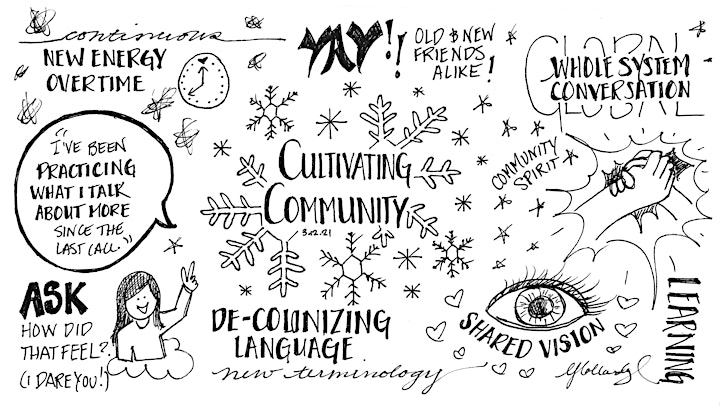 continuous
NEW ENERGY
OVERTIME
YAY!!
OLD & NEW
FRIENDS
ALIKE!
GLOBAL
WHOLE SYSTEM
CONVERSATION
GLOBAL
"I'VE BEEN
PRACTICING
WHAT I TALK
ABOUT MORE
SINCE THE
LAST CALL."
CULTIVATING
COMMUNITY
COMMUNITY
SPIRIT
ASK
HOW DID
THAT FEEL?
(I DARE YOU!)
DE-COLONIZING
LANGUAGE
new terminology
SHARED VISION
LEARNING